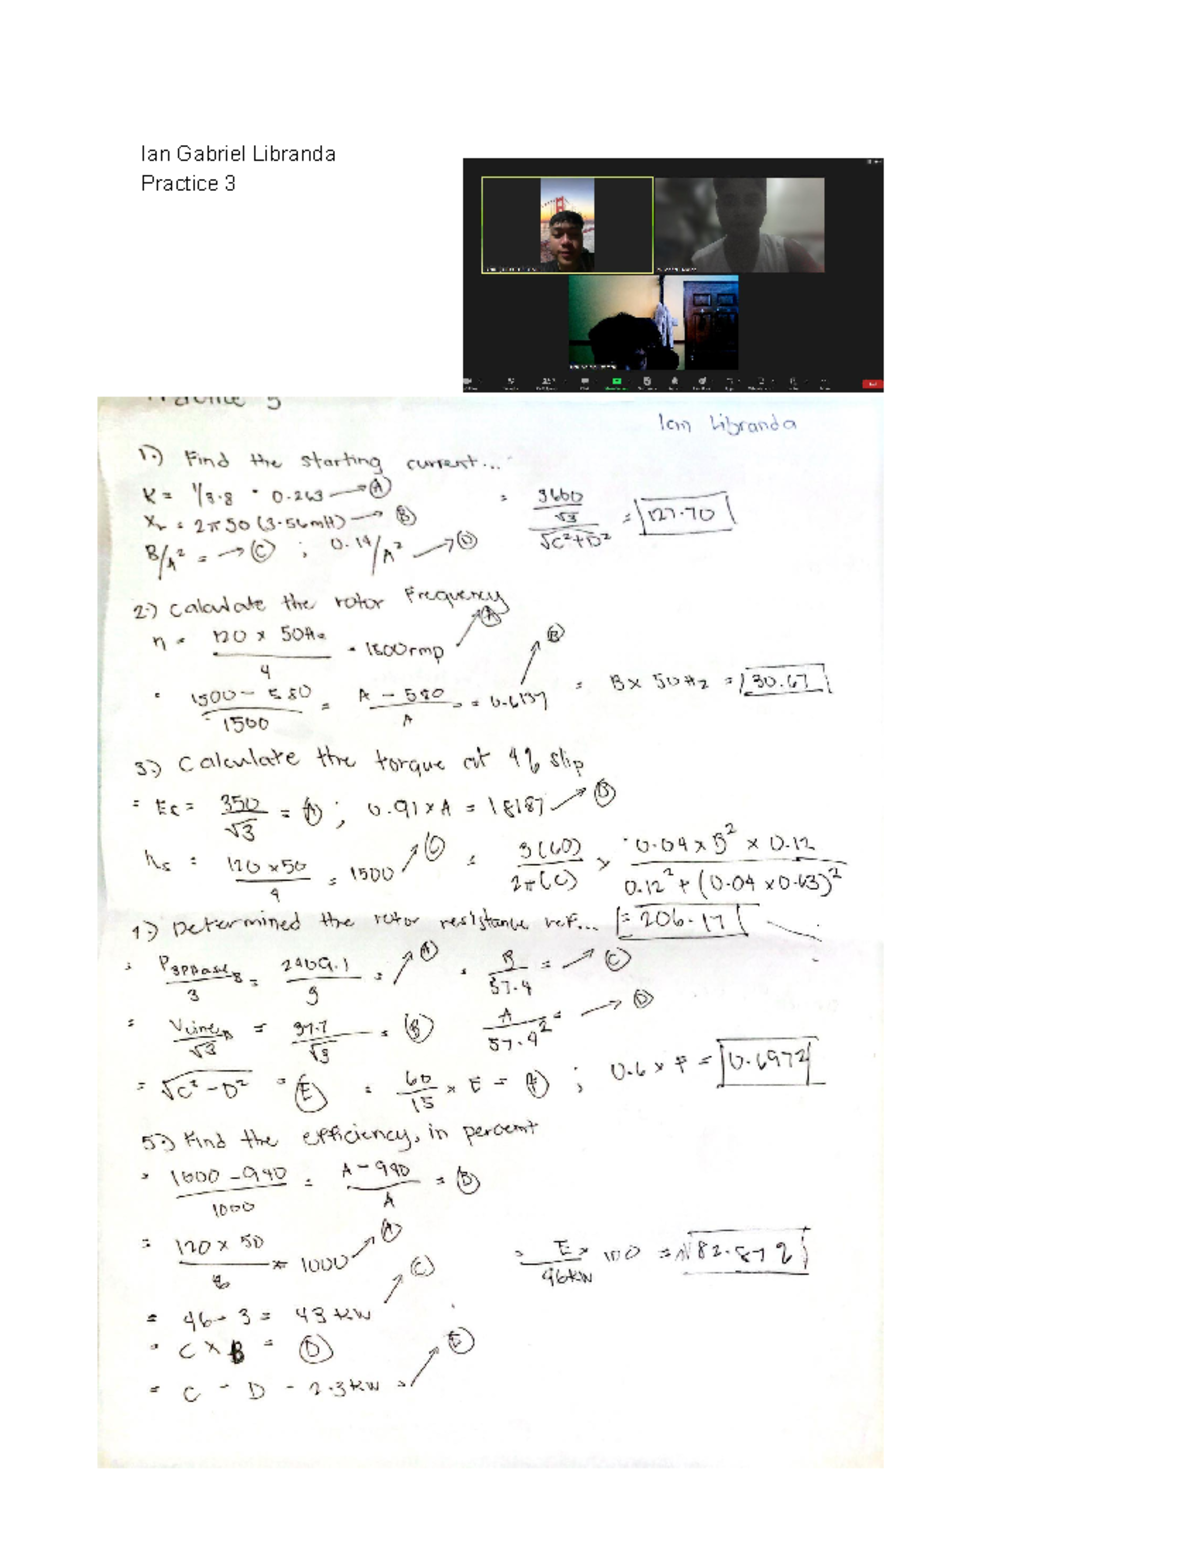 Ian Gabriel Libranda
Practice 3
Ian Libranda
1.) Find the starting current...
K = 1/3.8 · 0.263 → (A)
Xr = 2π50 (3.56mH) → (B)
B/A² = → (C) ; 0.14/A² → (D)
= 3660/√3 / √C²+D² = 127.70
2.) Calculate the rotor Frequency
n = 120 x 50Hz / 4 = 1500rmp → (A)
= 1500 - 580 / 1500 = A - 580 / A = = 0.6137 → (B)
= B x 50Hz = 30.67
3.) Calculate the torque at 4% slip
= Er = 350/√3 = (A) ; 0.91 x A = 18187 → (B)
ns = 120 x 50 / 4 = 1500 → (C)
= 3(60) / 2π(C) x 0.04 x B² x 0.12 / 0.12² + (0.04 x 0.63)²
= 206.17
4.) Determined the rotor resistance ref...
= P3phase / 3 = 2409.1 / 3 = → (A)
= B / 57.4 = → (C)
= Vline / √3 = 37.7 / √3 = (B)
A / 57.4² = → (D)
= √C² - D² = (E) = 60/15 x E = (F) ; 0.6 x F = 0.6972
5.) Find the efficiency, in percent
= 1000 - 940 / 1000 = A - 940 / A = (B)
= 120 x 50 / 6 = 1000 → (A)
= 46 - 3 = 43 kW → (C)
= C x B = (D)
= C - D - 2.3kW = → (E)
= E / 46kW x 100 = 82.872